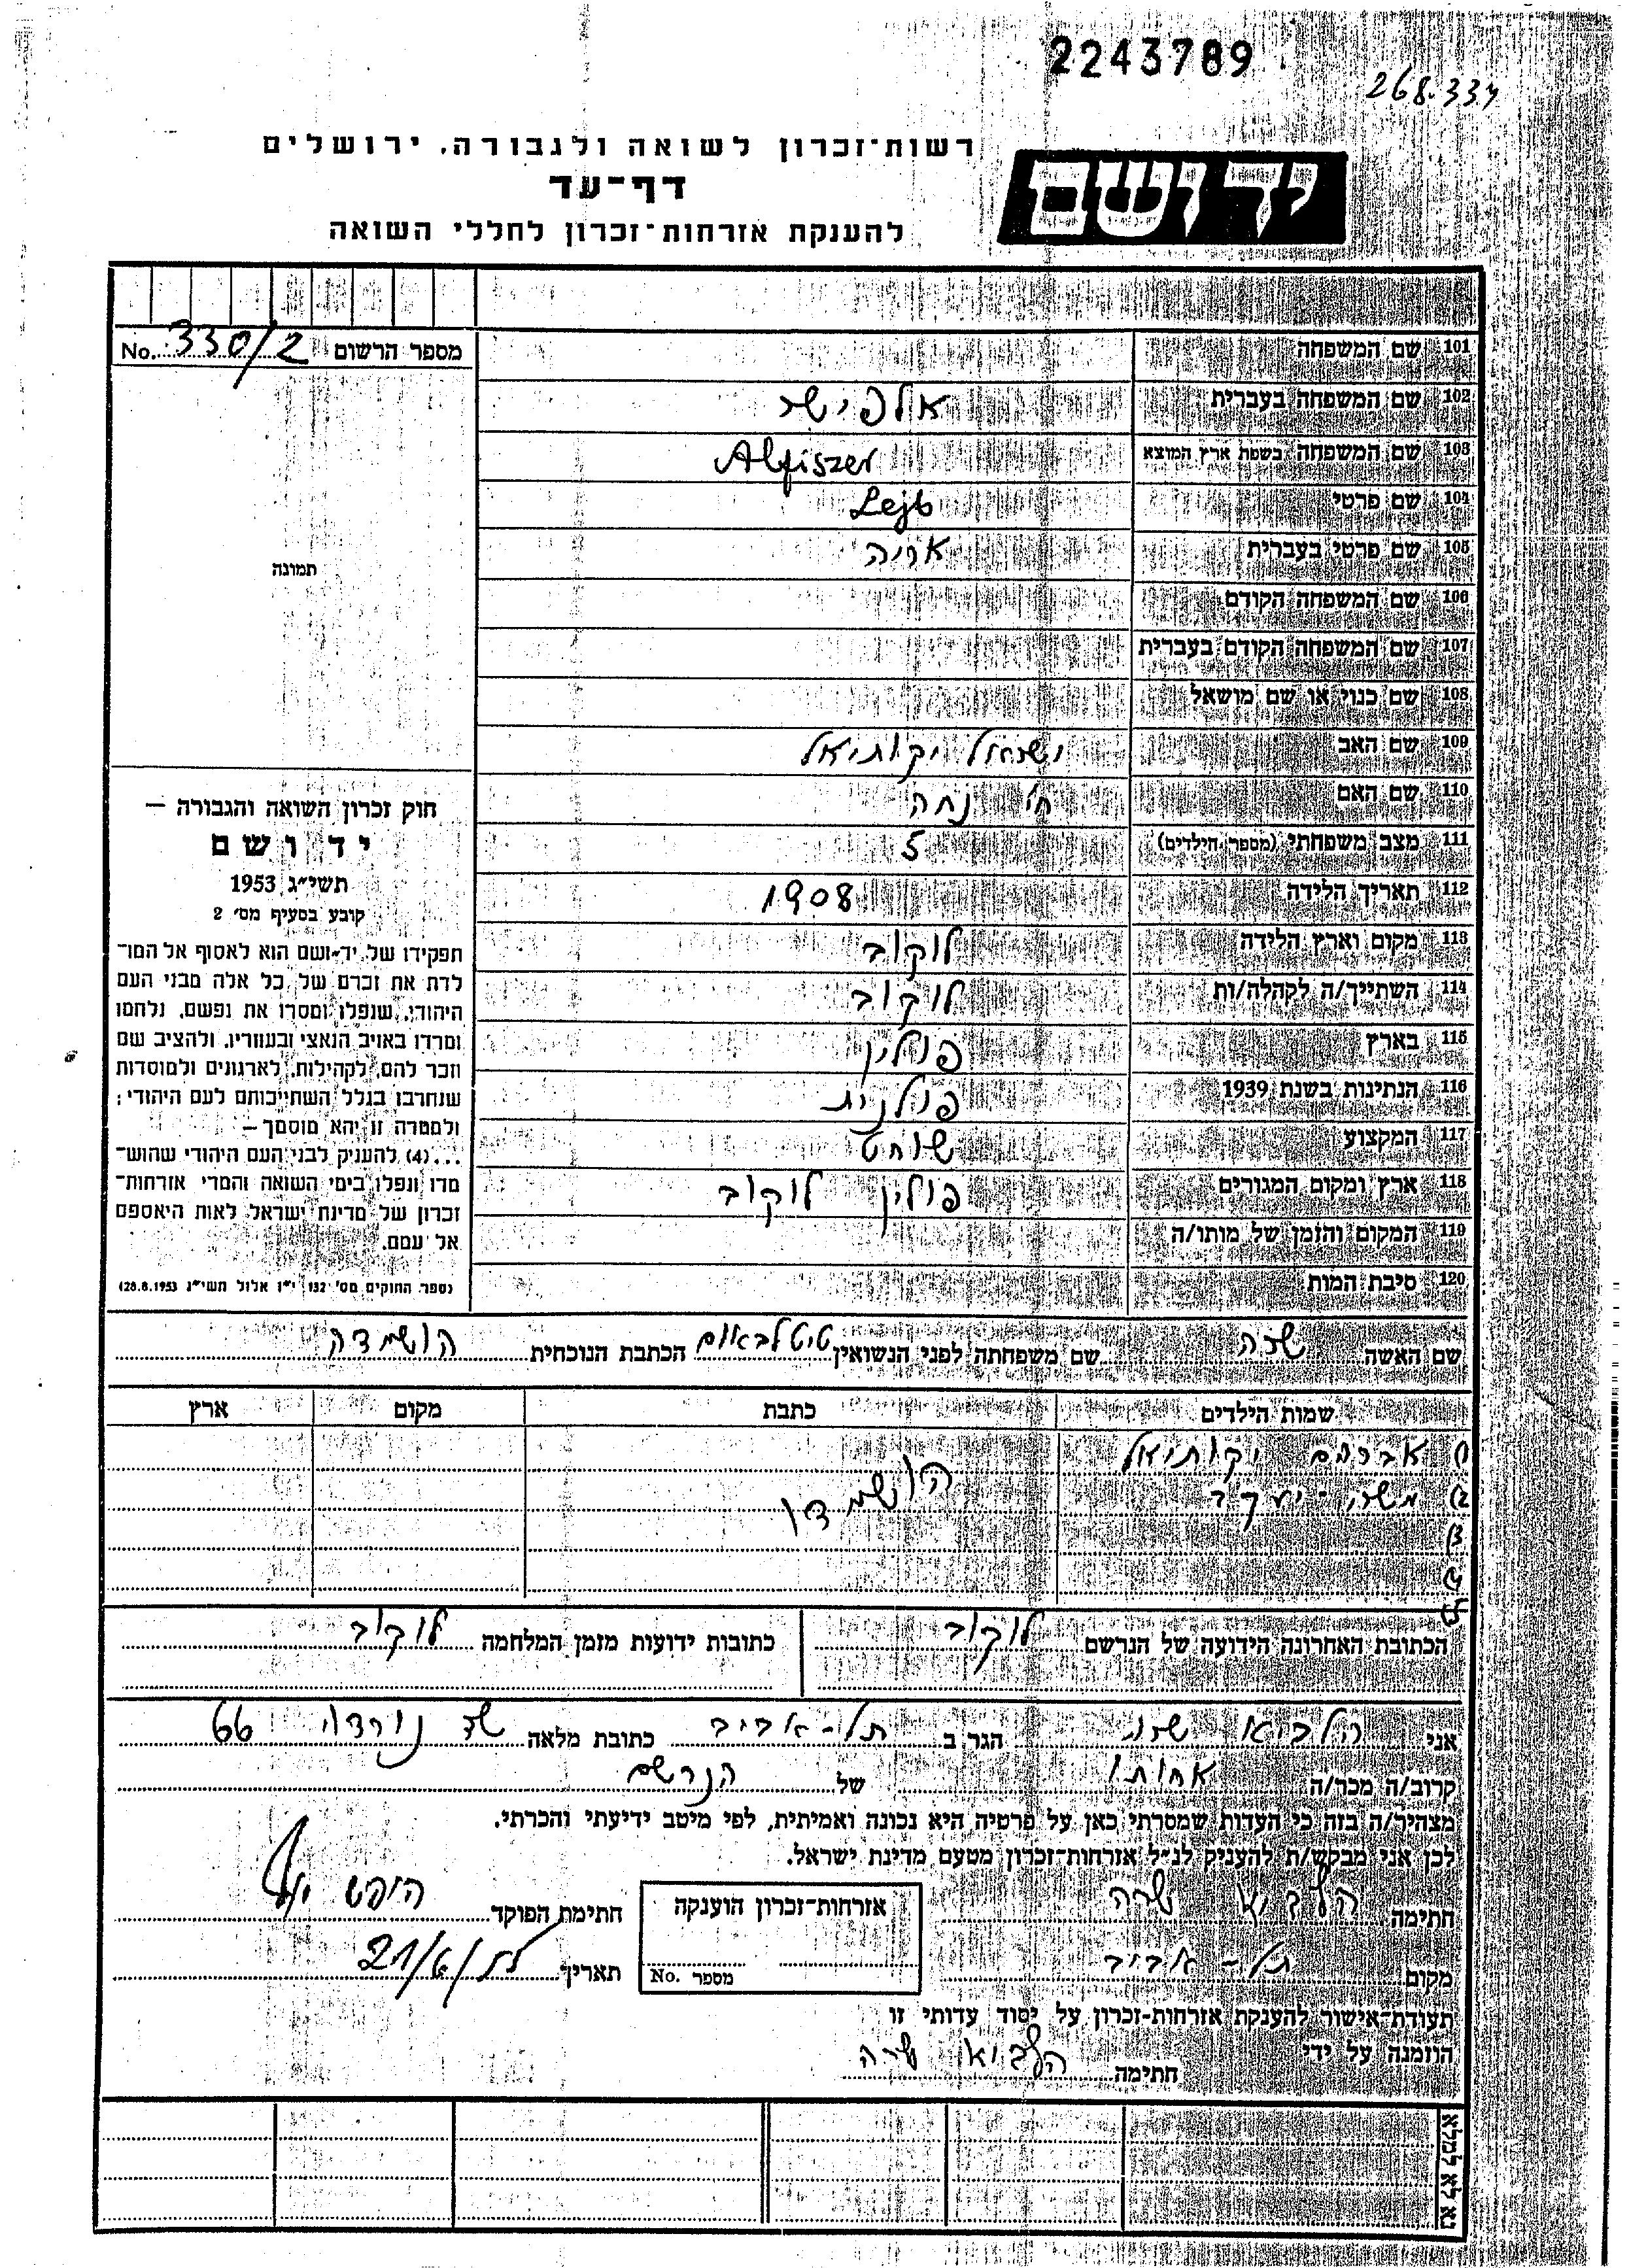 2243789
268.334
רשות־זכרון לשואה ולגבורה, ירושלים
יד ושם
דף־עד
להענקת אזרחות־זכרון לחללי השואה
מספר הרשום No. 330/2
101 שם המשפחה
102 שם המשפחה בעברית אלפישר
103 שם המשפחה בשפת ארץ המוצא Alfiszer
104 שם פרטי Lejb
105 שם פרטי בעברית אריה
106 שם המשפחה הקודם
107 שם המשפחה הקודם בעברית
108 שם כנוי או שם מושאל
109 שם האב ישראל יקותיאל
110 שם האם חי' נחה
111 מצב משפחתי (מספר הילדים) 5
112 תאריך הלידה 1908
113 מקום וארץ הלידה לוקוב
114 השתייך/ה לקהלה/ות לוקוב
115 בארץ פולין
116 הנתינות בשנת 1939 פולנית
117 המקצוע שוחט
118 ארץ ומקום המגורים פולין לוקוב
119 המקום והזמן של מותו/ה
120 סיבת המות
תמונה
חוק זכרון השואה והגבורה —
יד ושם
תשי״ג 1953
קובע בסעיף מס׳ 2
תפקידו של יד־ושם הוא לאסוף אל המו־
לדת את זכרם של כל אלה מבני העם
היהודי, שנפלו ומסרו את נפשם, נלחמו
ומרדו באויב הנאצי ובעוזריו, ולהציב שם
וזכר להם, לקהילות, לארגונים ולמוסדות
שנחרבו בגלל השתייכותם לעם היהודי;
ולמטרה זו יהא מוסמך —
...(4) להעניק לבני העם היהודי שהוש־
מדו ונפלו בימי השואה והמרי אזרחות־
זכרון של מדינת ישראל לאות היאספם
אל עמם.
(ספר החוקים מס׳ 132, י״ז אלול תשי״ג 28.8.1953)
שם האשה שרה שם משפחתה לפני הנשואין טיטלבאום הכתבת הנוכחית הושמדה
שמות הילדים כתבת מקום ארץ
1) אברהם יקותיאל
2) משה־יעקב הושמדו
3)
4)
5)
הכתובת האחרונה הידועה של הנרשם לוקוב כתובות ידועות מזמן המלחמה לוקוב
אני הלביא שרה הגר ב תל־אביב כתובת מלאה שד נורדוי 66
קרוב/ה מכר/ה אחותו של הנרשם
מצהיר/ה בזה כי העדות שמסרתי כאן על פרטיה היא נכונה ואמיתית, לפי מיטב ידיעתי והכרתי.
לכן אני מבקש/ת להעניק לנ״ל אזרחות־זכרון מטעם מדינת ישראל.
חתימה הלביא שרה אזרחות־זכרון הוענקה חתימת הפוקד
מקום תל־אביב מספר No. תאריך
תעודת־אישור להענקת אזרחות־זכרון על יסוד עדותי זו
הוזמנה על ידי
חתימה הלביא שרה
נא לא למלא